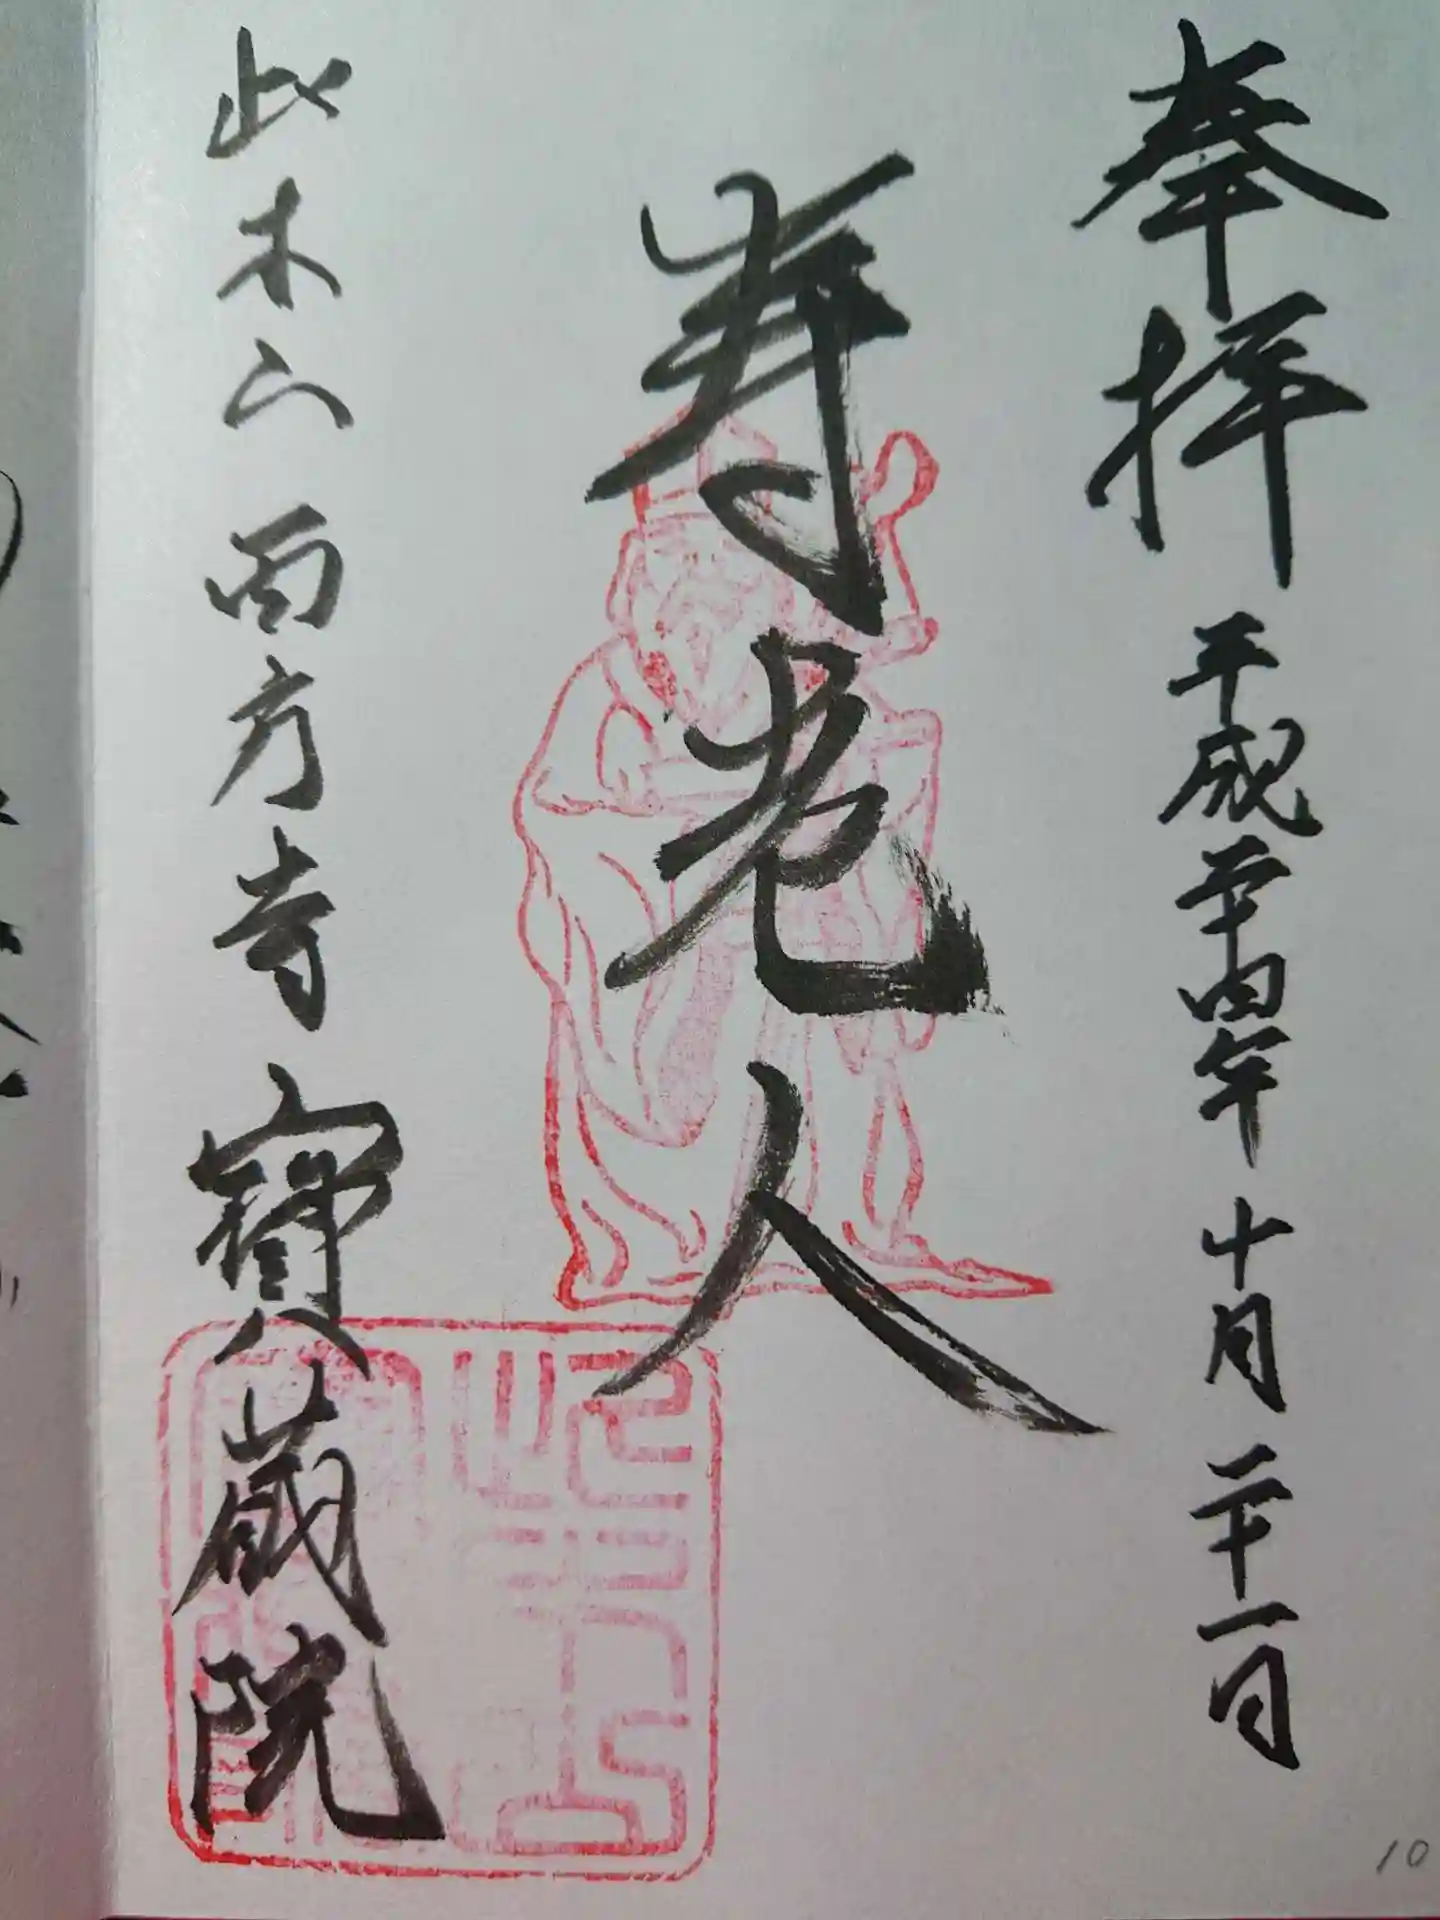 奉拝 平成二十四年 十月 二十一日
寿老人
此木山 西方寺 寳蔵院
10